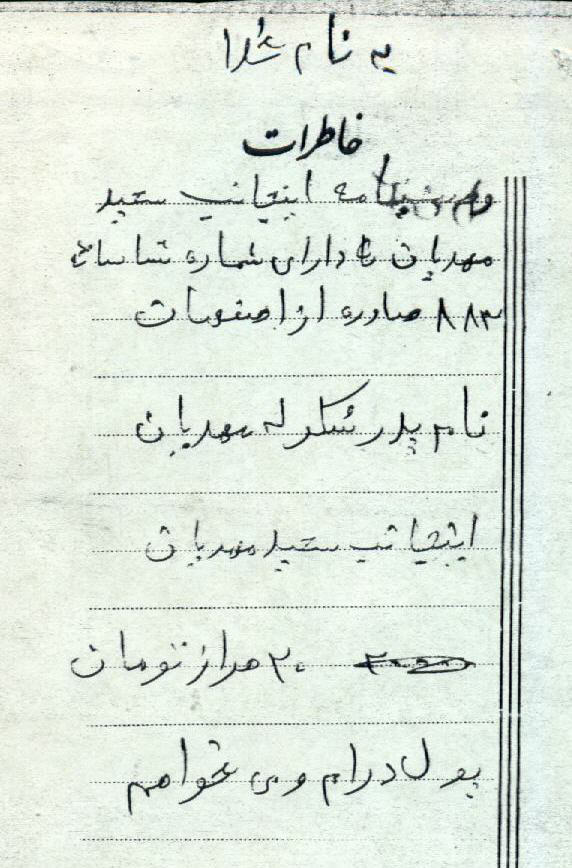 به نام خدا
خاطرات
وصیتنامه اینجانب سعید
مهدیان دارای شماره شناسنامه
۸۸۳ صادره از اصفهان
نام پدر شکراله مهدیان
اینجانب سعید مهدیان
۲۰ هزار تومان
پول دارم و می خواهم